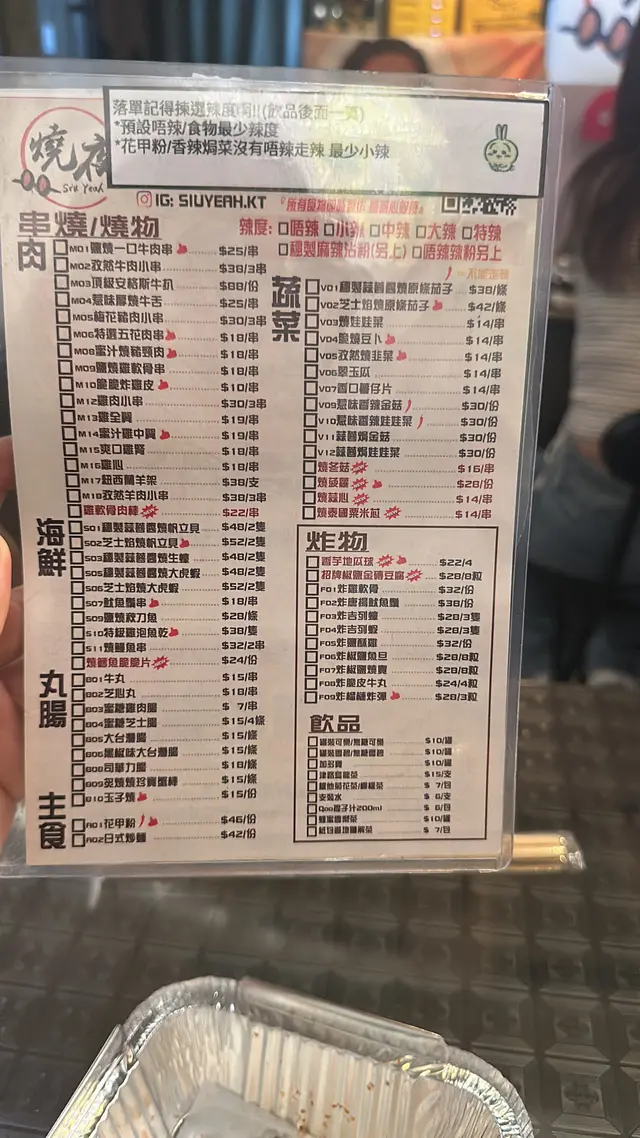 落單記得揀選辣度啊!!(飲品後面一頁)
*預設唔辣/食物最少辣度
*花甲粉/香辣焗菜沒有唔辣走辣 最少小辣
燒夜
Siu Yeah
IG: SIUYEAH.KT
串燒/燒物
辣度: 唔辣 小辣 中辣 大辣 特辣
秘製麻辣沾粉(另上) 唔辣辣粉另上
肉
M01鹽燒一口牛肉串 $25/串
M02孜然牛肉小串 $38/3串
M03頂級安格斯牛扒 $88/份
M04惹味厚燒牛舌 $25/串
M05梅花豬肉小串 $30/3串
M06特選五花肉串 $18/串
M08蜜汁燒豬頸肉 $18/串
M09鹽燒雞軟骨串 $18/串
M10脆脆炸雞皮 $10/串
M12雞肉小串 $30/3串
M13雞全翼 $19/串
M14蜜汁雞中翼 $19/串
M15爽口雞腎 $18/串
M16雞心 $18/串
M17紐西蘭羊架 $38/支
M18孜然羊肉小串 $38/3串
雞軟骨肉棒 $22/串
海鮮
S01秘製蒜蓉醬燒帆立貝 $48/2隻
S02芝士焰燒帆立貝 $52/2隻
S03秘製蒜蓉醬燒生蠔 $48/2隻
S05秘製蒜蓉醬燒大虎蝦 $48/2隻
S06芝士焰燒大虎蝦 $52/2隻
S07魷魚鬚串 $18/串
S09鹽燒秋刀魚 $28/條
S10特級雞泡魚乾 $38/隻
S11燒鰻魚串 $32/2串
燒鱈魚脆脆片 $24/份
丸腸
B01牛丸 $15/串
B02芝心丸 $18/串
B03蜜糖雞肉腸 $ 7/串
B04蜜糖芝士腸 $15/4條
B05大台灣腸 $15/條
B06黑椒味大台灣腸 $15/條
B08司華力腸 $18/條
B09炙燒燒珍寶蟹棒 $15/條
B10玉子燒 $15/份
主食
A01花甲粉 $46/份
A02日式炒麵 $42/份
蔬菜
V01秘製蒜蓉醬燒原條茄子 $38/條
V02芝士焰燒原條茄子 $42/條
V03燒娃娃菜 $14/串
V04脆燒豆卜 $14/串
V05孜然燒韭菜 $14/串
V06翠玉瓜 $14/串
V07香口薯仔片 $14/串
V09惹味香辣金菇 $30/份
V10惹味香辣娃娃菜 $30/份
V11蒜蓉焗金菇 $30/份
V12蒜蓉焗娃娃菜 $30/份
燒冬菇 $16/串
燒菠蘿 $28/份
燒蒜心 $14/串
燒泰國粟米芯 $14/串
炸物
香芋地瓜球 $22/4
招牌椒鹽金磚豆腐 $28/8粒
F01炸雞軟骨 $32/份
F02炸唐揚魷魚鬚 $38/份
F03炸吉列蠔 $28/3隻
F04炸吉列蝦 $28/3隻
F05炸鹽酥雞 $32/份
F06炸椒鹽魚旦 $28/8粒
F07炸椒鹽燒賣 $28/8粒
F08炸脆皮牛丸 $24/4粒
F09炸榴槤炸彈 $28/3粒
飲品
罐裝可樂/無糖可樂 $10/罐
$10/罐
加多寶 $10/罐
津路烏龍茶 $15/支
維他菊花茶/檸檬茶 $ 7/包
支裝水 $ 6/支
Qoo橙子汁200ml) $ 6/包
蜂蜜香樂茶 $10/罐
$ 7/包